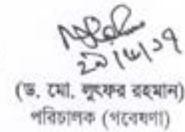 (ড. মো. লুৎফর রহমান)
পরিচালক (গবেষণা)